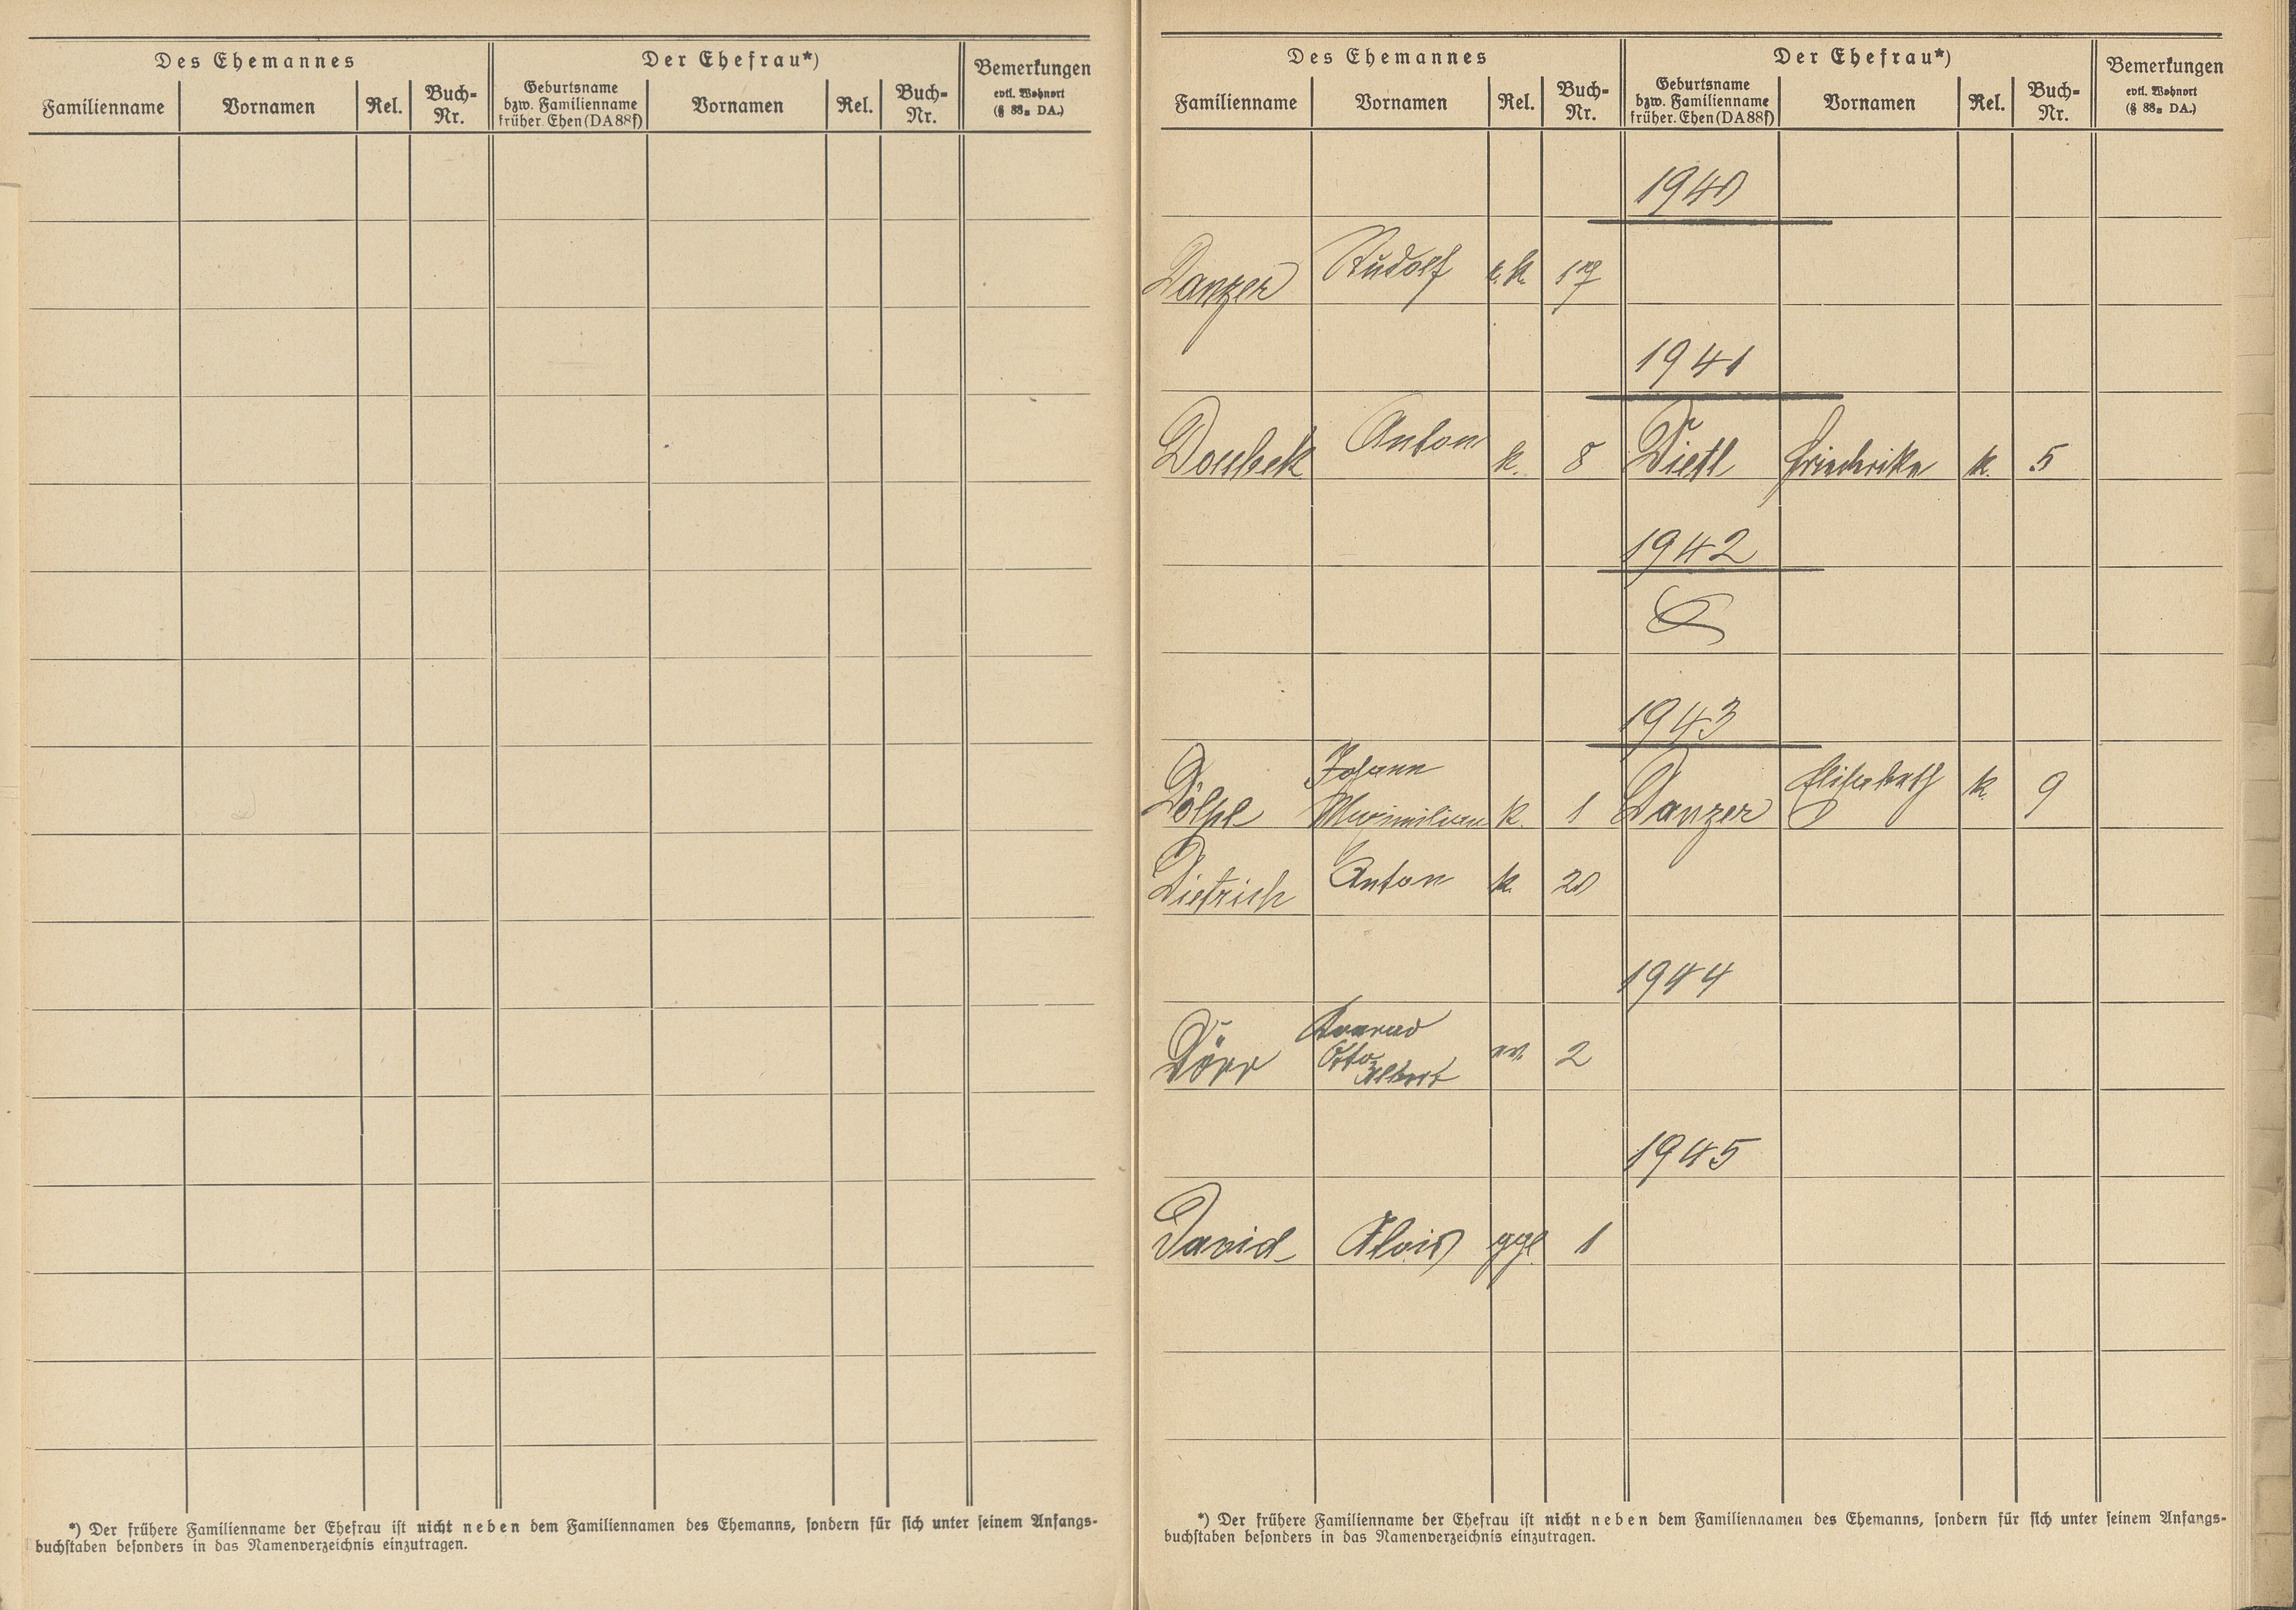 Des Ehemannes
Der Ehefrau*)
Bemerkungen
evtl. Wohnort
(§ 88a DA.)
Familienname
Vornamen
Rel.
Buch-
Nr.
Geburtsname
bzw. Familienname
früher. Ehen (DA 88f)
Vornamen
Rel.
Buch-
Nr.
*) Der frühere Familienname der Ehefrau ist nicht neben dem Familiennamen des Ehemanns, sondern für sich unter seinem Anfangs-
buchstaben besonders in das Namenverzeichnis einzutragen.
Des Ehemannes
Der Ehefrau*)
Bemerkungen
evtl. Wohnort
(§ 88a DA.)
Familienname
Vornamen
Rel.
Buch-
Nr.
Geburtsname
bzw. Familienname
früher. Ehen (DA 88f)
Vornamen
Rel.
Buch-
Nr.
1940
Danzer Rudolf r.k. 17
1941
Doubek Anton k. 8 Dietl Friederike k. 5
1942
1943
Johann
Maximilian k. 1 Danzer Elisabeth k. 9
Dietrich Anton k. 20
1944
Konrad
Dörr Otto ev. 2
Albert
1945
David Alois ggl. 1
*) Der frühere Familienname der Ehefrau ist nicht neben dem Familiennamen des Ehemanns, sondern für sich unter seinem Anfangs-
buchstaben besonders in das Namenverzeichnis einzutragen.